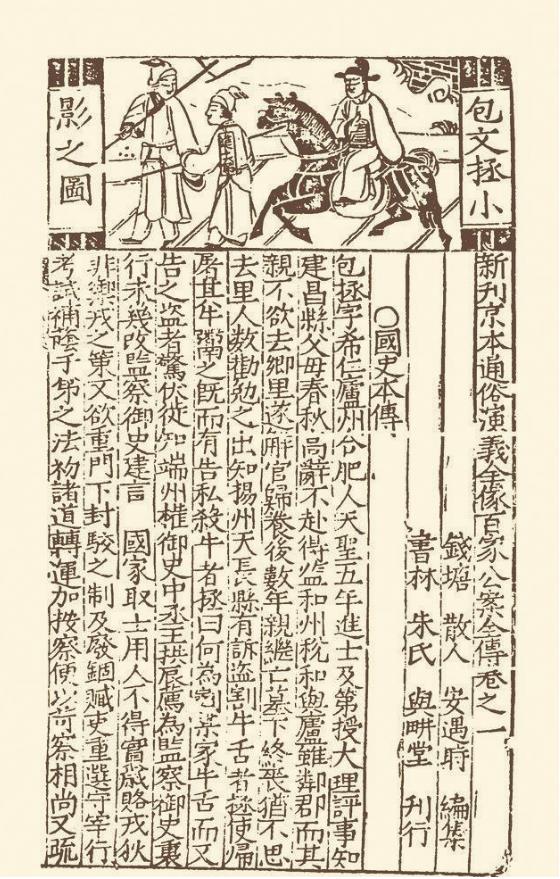 包文拯小
影之圖
新刊京本通俗演義全像百家公案全傳卷之一
錢塘 散人 安遇時 編集
書林 朱氏 與畊堂 刊行
○國史本傳
包拯字希仁廬州合肥人天聖五年進士及第授大理評事知
建昌縣父母春秋高辭不赴得監和州稅和與廬雖鄰郡而其
親不欲去鄉里遂解官歸養後數年親繼亡墓下終喪猶不忍
去里人數勸勉之出知揚州天長縣有訴盜割牛舌者拯使歸
屠其牛鬻之既而有告私殺牛者拯曰何為割某家牛舌而又
告之盜者驚伏徙知端州權御史中丞王拱辰薦為監察御史裏
行未幾改監察御史建言 國家取士用人不得實歲賂戎狄
非禦戎之策文欲重門下封駁之制及廢錮贓吏重選守宰行
考試補廕子弟之法初諸道轉運加按察使以苛察相尚又疏